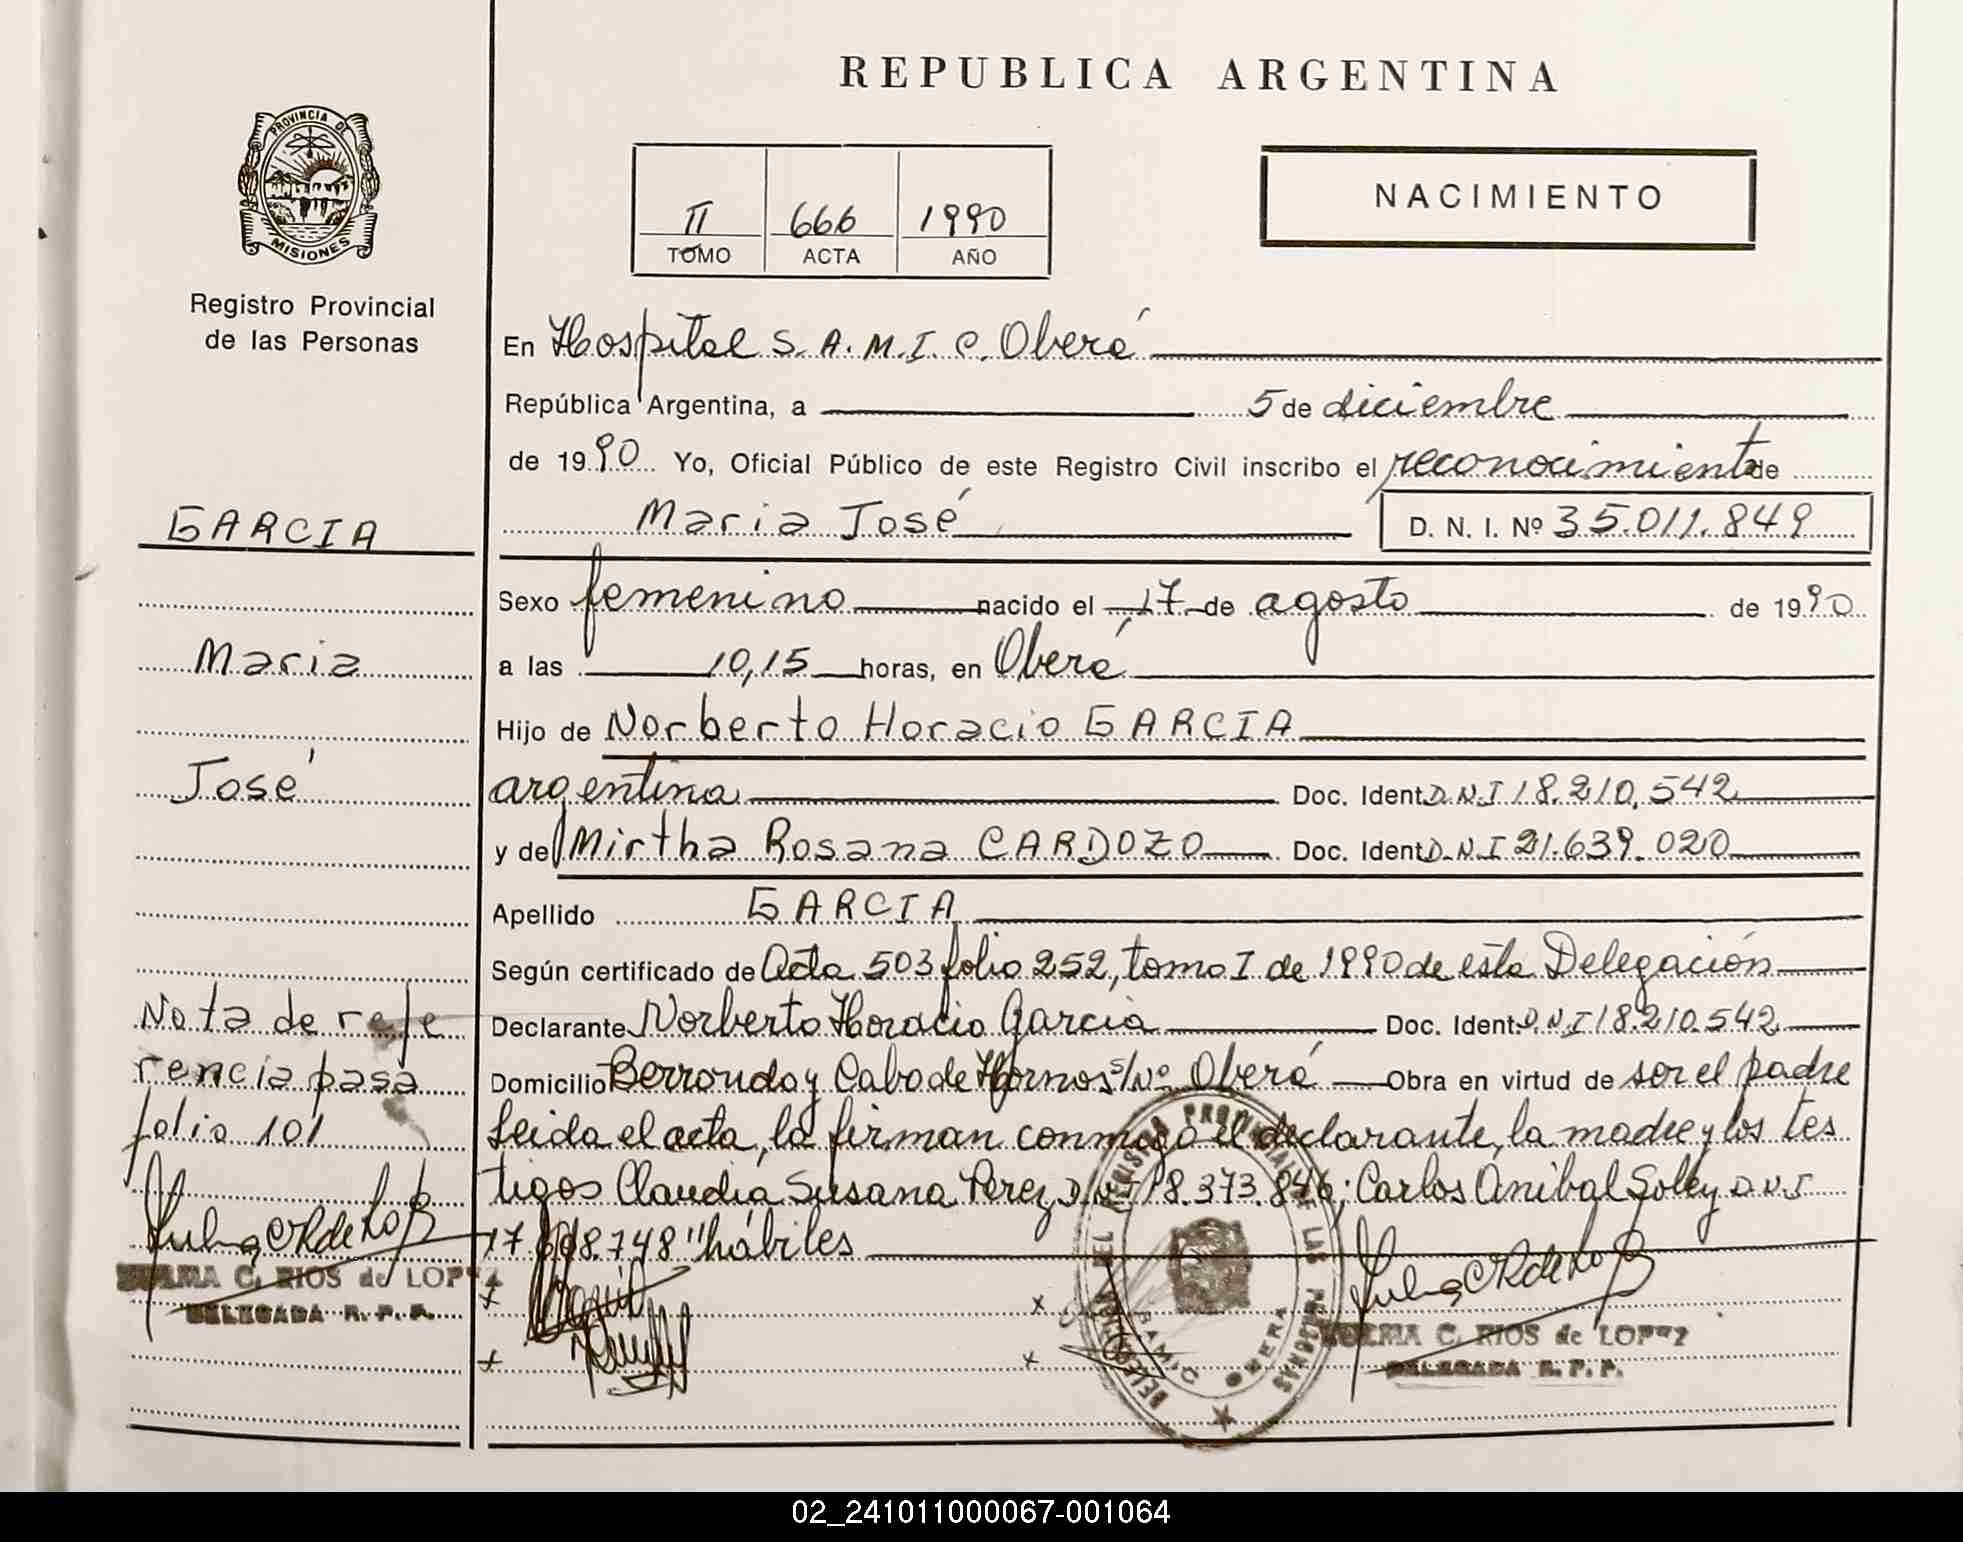 REPUBLICA ARGENTINA
PROVINCIA DE
MISIONES
Registro Provincial
de las Personas
II 666 1990
TOMO ACTA AÑO
NACIMIENTO
En Hospital S.A.M.I.C. Oberá
República Argentina, a 5 de diciembre
de 1990 Yo, Oficial Público de este Registro Civil inscribo el reconocimiento de
Maria José D. N. I. Nº 35.011.849
Sexo femenino nacido el 17 de agosto de 1990
a las 10,15 horas, en Oberá
Hijo de Norberto Horacio GARCIA
argentina Doc. Ident. D.N.I 18.210.542
y de Mirtha Rosana CARDOZO Doc. Ident. D.N.I 21.639.020
Apellido GARCIA
Según certificado de Acta 503 folio 252, tomo I de 1990 de esta Delegación
Declarante Norberto Horacio Garcia Doc. Ident. D.N.I 18.210.542
Domicilio y Cabo de Hornos s/Nº Oberá Obra en virtud de ser el padre
Leida el acta, la firman conmigo el declarante, la madre y los tes
tigos Claudia Susana Perez D.N.I 18.373.846; Carlos Anibal D.N.I
17 8.748 "hábiles
GARCIA
Maria
José
Nota de refe
rencia pasa
folio 101
C. RIOS de LOPEZ
DELEGADA R.P.P.
C. RIOS de LOPEZ
DELEGADA R.P.P.
REGISTRO PROVINCIAL DE LAS PERSONAS
SAMIC OBERA
02_241011000067-001064